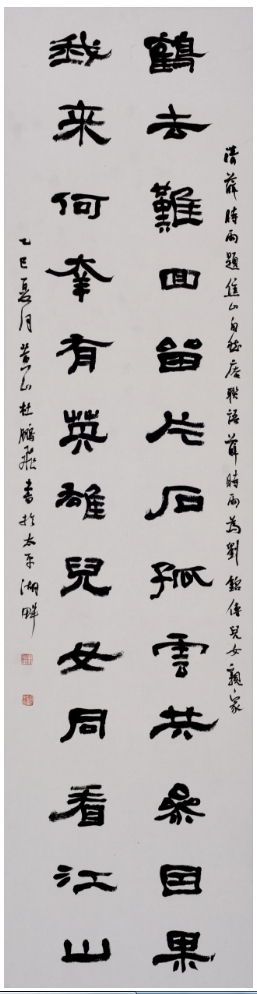 清薛時雨題焦山自然庵聯語薛時雨為劉銘傳兒女親家
鶴去難回留片石孤雲共參因果
我來何幸有英雄兒女同看江山
乙巳夏月黄山杜鵬飛書於太平湖畔